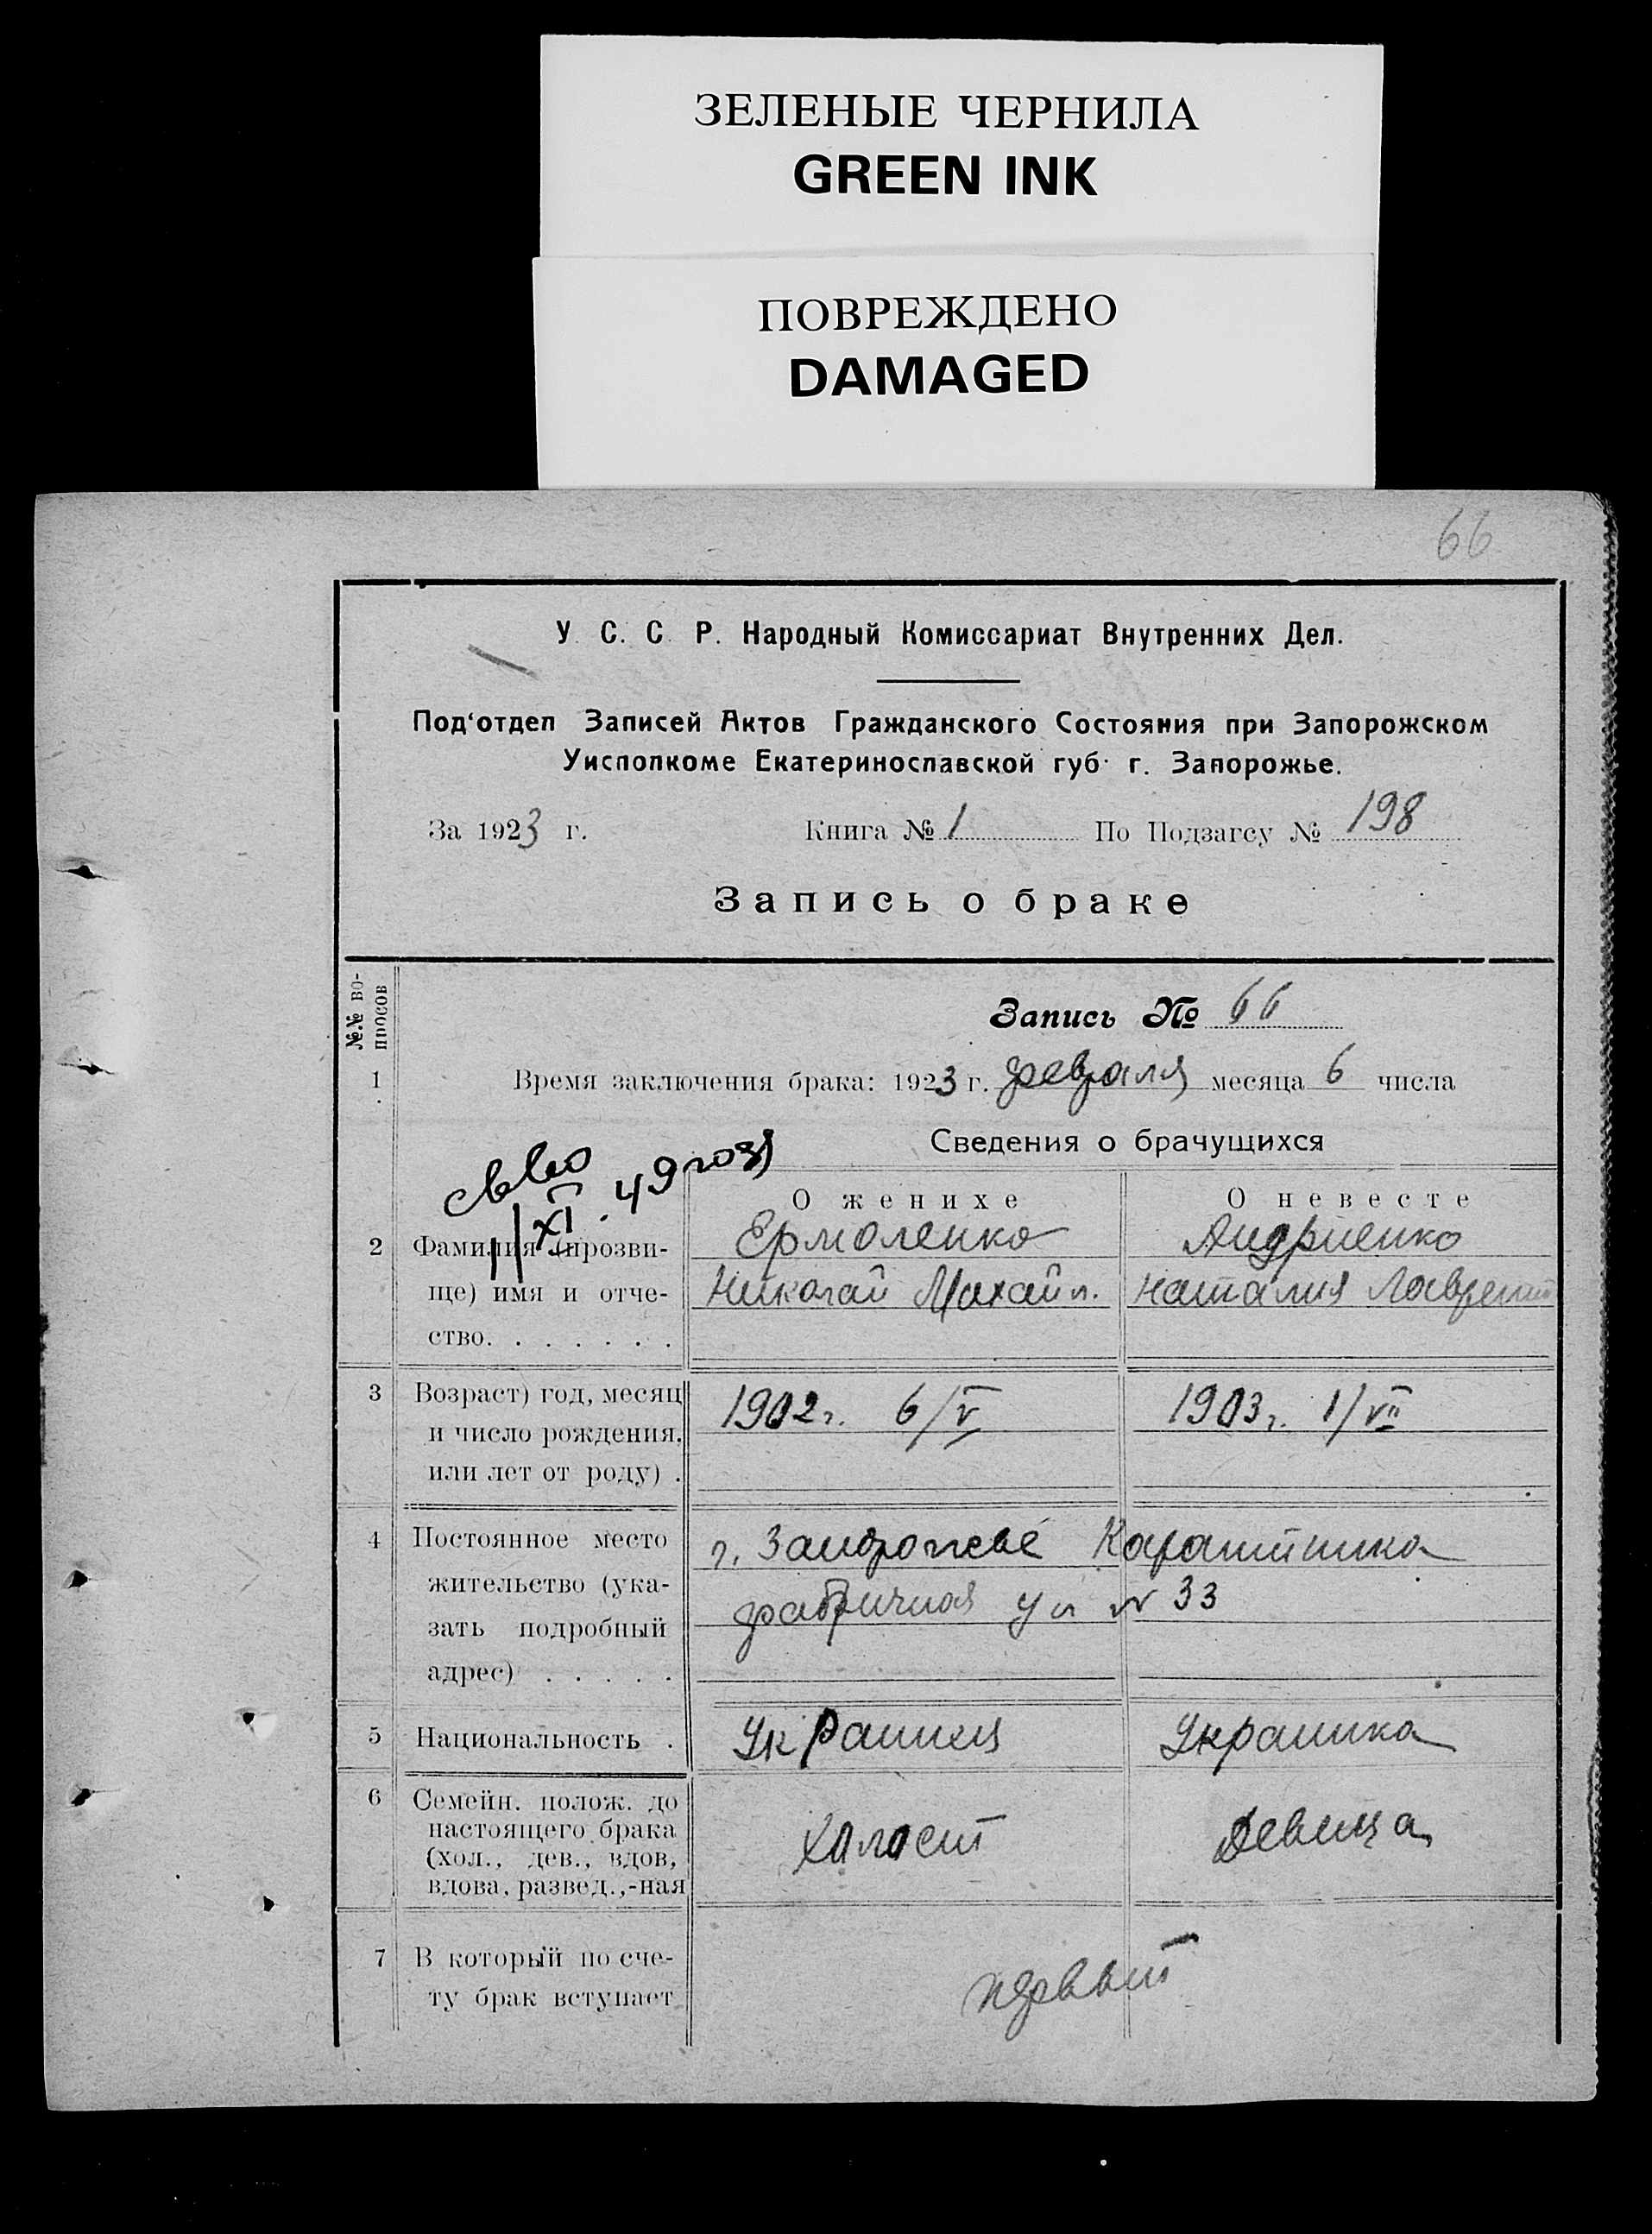 ЗЕЛЕНЫЕ ЧЕРНИЛА
GREEN INK
ПОВРЕЖДЕНО
DAMAGED
66
У. С. С. Р. Народный Комиссариат Внутренних Дел.
Под‘отдел Записей Актов Гражданского Состояния при Запорожском
Уисполкоме Екатеринославской губ. г. Запорожье.
За 1923 г. Книга № 1 По Подзагсу № 198
Запись о браке
№№ во-
просов
Запись № 66
1 Время заключения брака: 1923 г. февраля месяца 6 числа
Сведения о брачущихся
11/XI. 49 года
О женихе О невесте
2 Фамилия (прозви- Ермоленко Андриенко
ще) имя и отче- Николай Михайл. Наталия Лаврент
ство. . . . . . .
3 Возраст) год, месяц 1902 г. 6/V 1903 г. 1/VII
и число рождения.
или лет от роду) .
4 Постоянное место г. Запорожье
жительство (ука- фабричная ул № 33
зать подробный
адрес) . . . . .
5 Национальность . Украинец Украинка
6 Семейн. полож. до
настоящего брака Холост Девица
(хол., дев., вдов,
вдова, развед.,-ная
7 В который по сче- первый
ту брак вступает